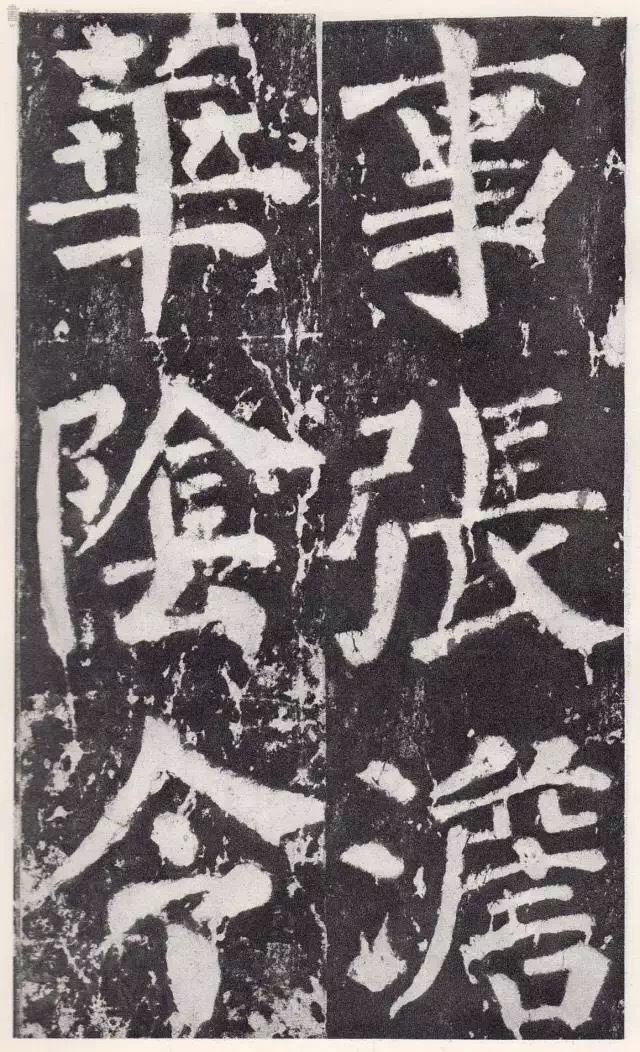 事張澹
華陰令